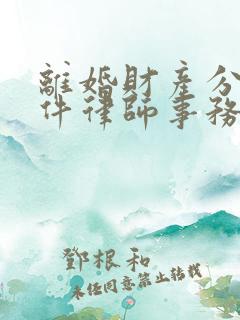 離婚財產分
件律師事務
鄧根和
未經同意禁止轉載